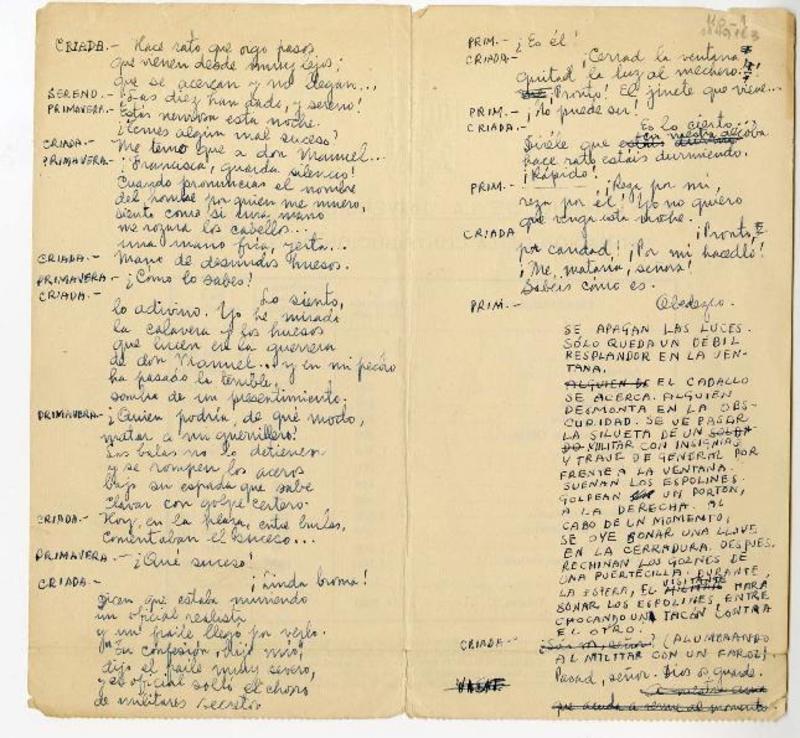 CRIADA.- Hace rato que oigo pasos
que vienen desde muy lejos;
que se acercan y no llegan...
SERENO.- ¡Las diez han dado, y sereno!
PRIMAVERA.- Estás nerviosa esta noche.
¿Temes algún mal suceso?
CRIADA.- Me temo que a don Manuel...
PRIMAVERA.- ¡Francisca, guarda silencio!
Cuando pronuncias el nombre
del hombre por quien me muero,
siento como si una mano
me rozara los cabellos...
una mano fría, yerta...
CRIADA.- Mano de desnudos huesos.
PRIMAVERA.- ¿Cómo lo sabes?
CRIADA.- Lo siento,
lo adivino. Yo he mirado
la calavera y los huesos
que lucen en la guerrera
de don Manuel... y en mi pecho
ha pasado la terrible
sombra de un presentimiento.
PRIMAVERA.- ¡Quien podría, de qué modo,
matar a un guerrillero!
Las balas no lo detienen
y se rompen los aceros
bajo su espada que sabe
clavar con golpe certero.
CRIADA.- Hoy, en la plaza, entre burlas,
comentaban el suceso...
PRIMAVERA.- ¡Qué suceso!
CRIADA.- ¡Linda broma!
Dicen que estaba muriendo
un oficial realista
y un fraile llegó por verlo.
"Tu confesión, hijo mío",
dijo el fraile muy severo,
y el oficial soltó el chorro
de militares secretos
PRIM.- ¡Es él!
CRIADA.- ¡Cerrad la ventana
quitad la luz al mechero...!
¡Pronto! El jinete que viene...
PRIM.- ¡No puede ser!
CRIADA.- Es lo cierto...
Diréle que en vuestra alcoba
hace rato estáis durmiendo.
¡Rápido!
PRIM.- ¡Reza por mí,
reza por él! Yo no quiero
que venga esta noche.
CRIADA ¡Pronto,
por caridad! ¡Por mí hacedlo!
¡Me mataría, señora!
Sabéis cómo es.
PRIM.- Obedezco.
SE APAGAN LAS LUCES.
SÓLO QUEDA UN DÉBIL
RESPLANDOR EN LA VEN-
TANA.
ALGUIEN DE EL CABALLO
SE ACERCA. ALGUIEN
DESMONTA EN LA OBS-
CURIDAD. SE VE PASAR
LA SILUETA DE UN SOLDA-
DO MILITAR CON INSIGNIAS
Y TRAJE DE GENERAL POR
FRENTE A LA VENTANA.
SUENAN LOS ESPOLINES.
GOLPEAN UN PORTÓN,
A LA DERECHA. AL
CABO DE UN MOMENTO,
SE OYE SONAR UNA LLAVE
EN LA CERRADURA. DESPUÉS.
RECHINAN LOS GOZNES DE
UNA PUERTECILLA. DURANTE
LA ESPERA, EL VISITANTE HARÁ
SONAR LOS ESPOLINES, ENTRE
CHOCANDO UN TACÓN CONTRA
EL OTRO.
CRIADA.- (ALUMBRANDO
AL MILITAR CON UN FAROL)
Pasad, señor. Dios os guarde.
que acuda a verme al momento